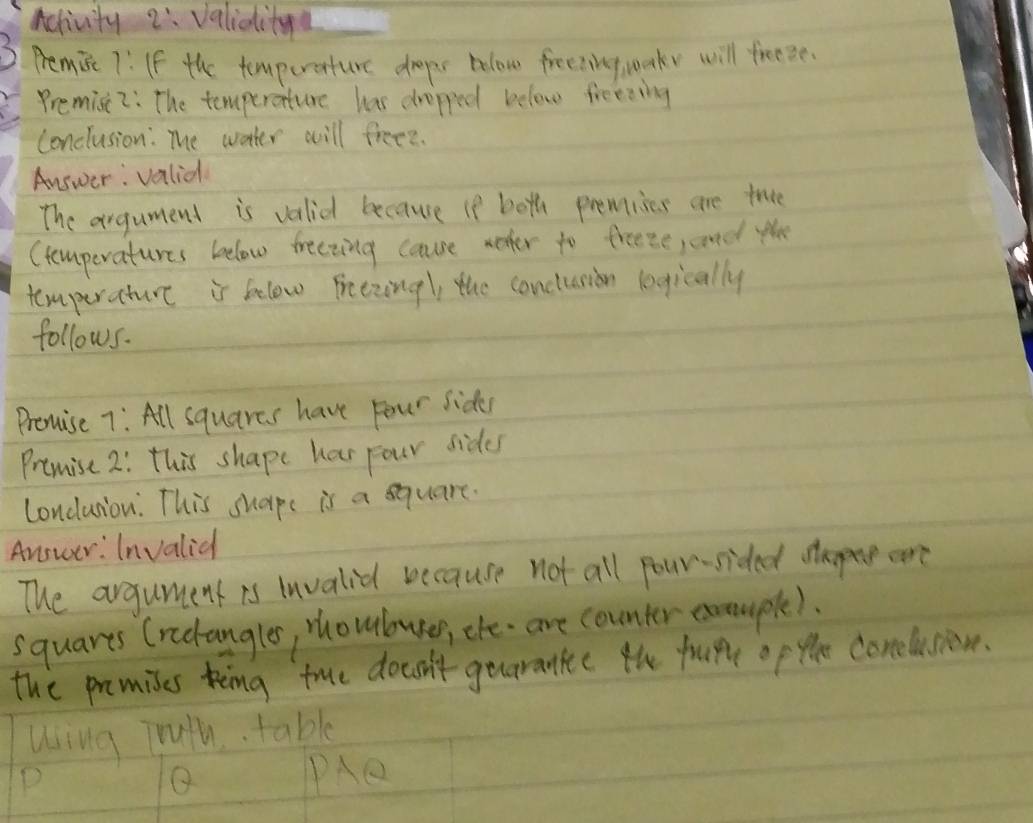 Activity 2: Validity
Premise 1: If the temperature drops below freezing, water will freeze.
Premise 2: The temperature has dropped below freezing
Conclusion: The water will freez.
Answer: valid
The argument is valid because if both premises are true
(temperatures below freezing cause water to freeze, and the
temperature is below freezing), the conclusion logically
follows.
Premise 1: All squares have four sides
Premise 2: This shape has four sides
Conclusion: This shape is a square.
Answer: Invalid
The argument is invalid because not all four-sided shapes are
squares (rectangles, rhombuses, etc. are counter example).
the premises being true doesn't guarantee the truth of the conclusion.
Using Truth table
P Q P∧Q